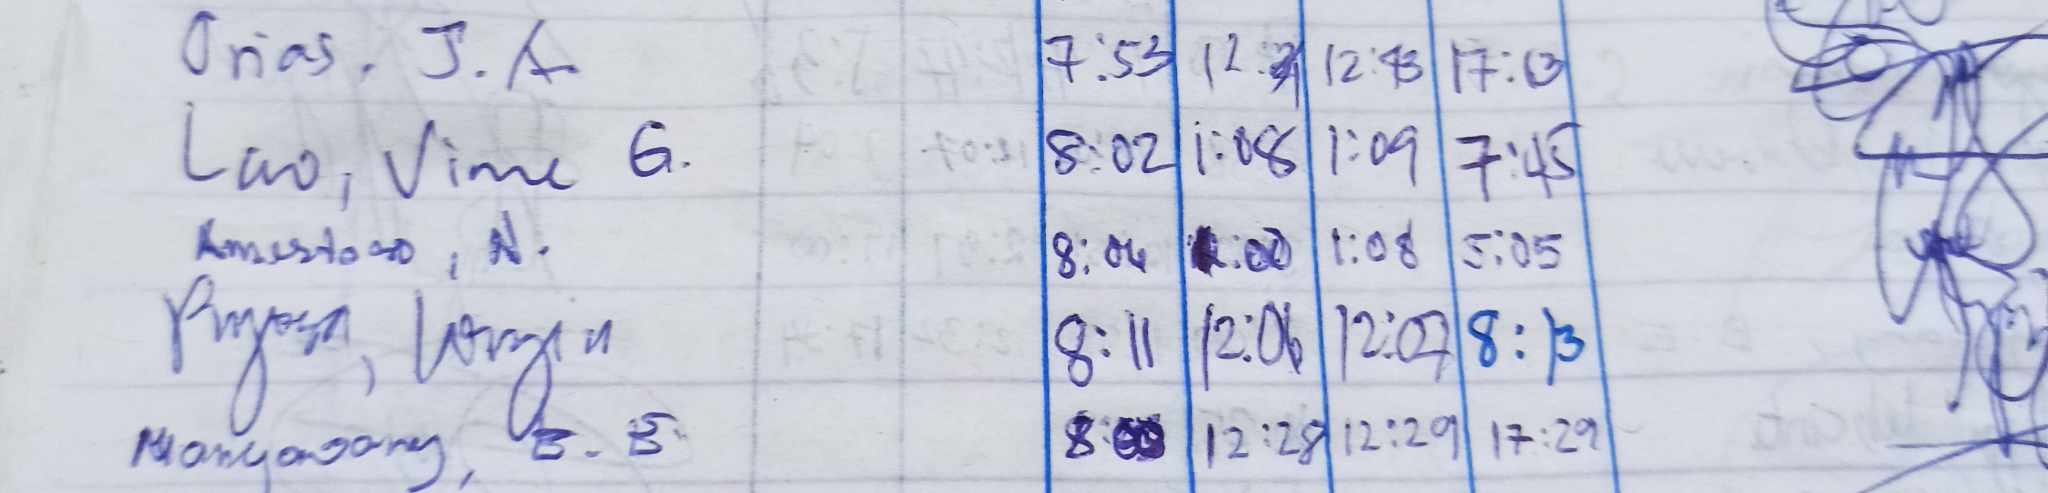 Orias, J. A. 7:53 12: 12:43 17:13
Lao, Vime G. 8:02 1:08 1:09 7:45
Amestoso, N. 8:04 :00 1:08 5:05
8:11 12:06 12:07 8:13
Manyagang, B. B 8:00 12:28 12:29 17:29